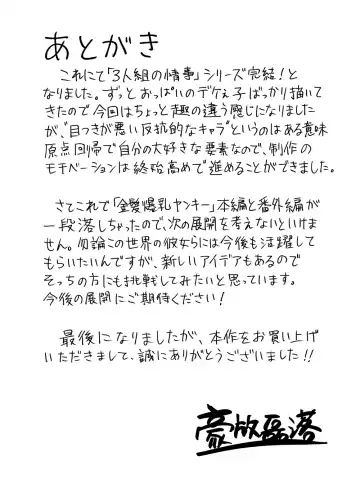 あとがき
これにて「3人組の情事」シリーズ完結！と
なりました。ずっとおっぱいのデケぇ子ばっかり描いて
きたので今回はちょっと趣の違う感じになりました
が、"目つきが悪い反抗的なキャラ"というのはある意味
原点回帰で自分の大好きな要素なので、制作の
モチベーションは終始高めで進めることができました。
さてこれで「金髪爆乳ヤンキー」本編と番外編が
一段落しちゃったので、次の展開を考えないといけま
せん。勿論この世界の彼女らには今後も活躍して
もらいたいんですが、新しいアイデアもあるので
そっちの方にも挑戦してみたいと思っています。
今後の展開にご期待ください！
最後になりましたが、本作をお買い上げ
いただきまして、誠にありがとうございました！！
豪放磊落